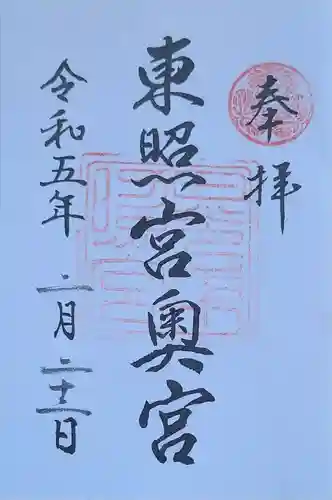 奉拝
東照宮奥宮
令和五年二月二十二日